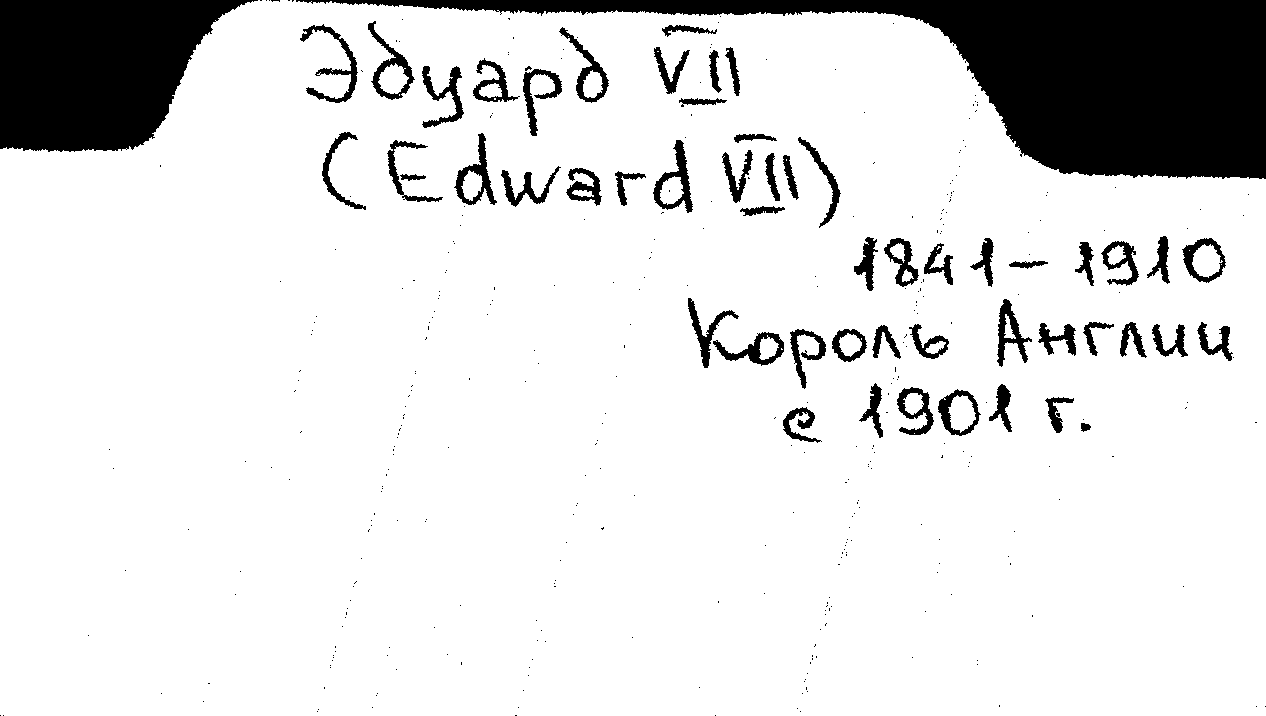 Эдуард VII
(Edward VII)
1841–1910
Король Англии
с 1901 г.